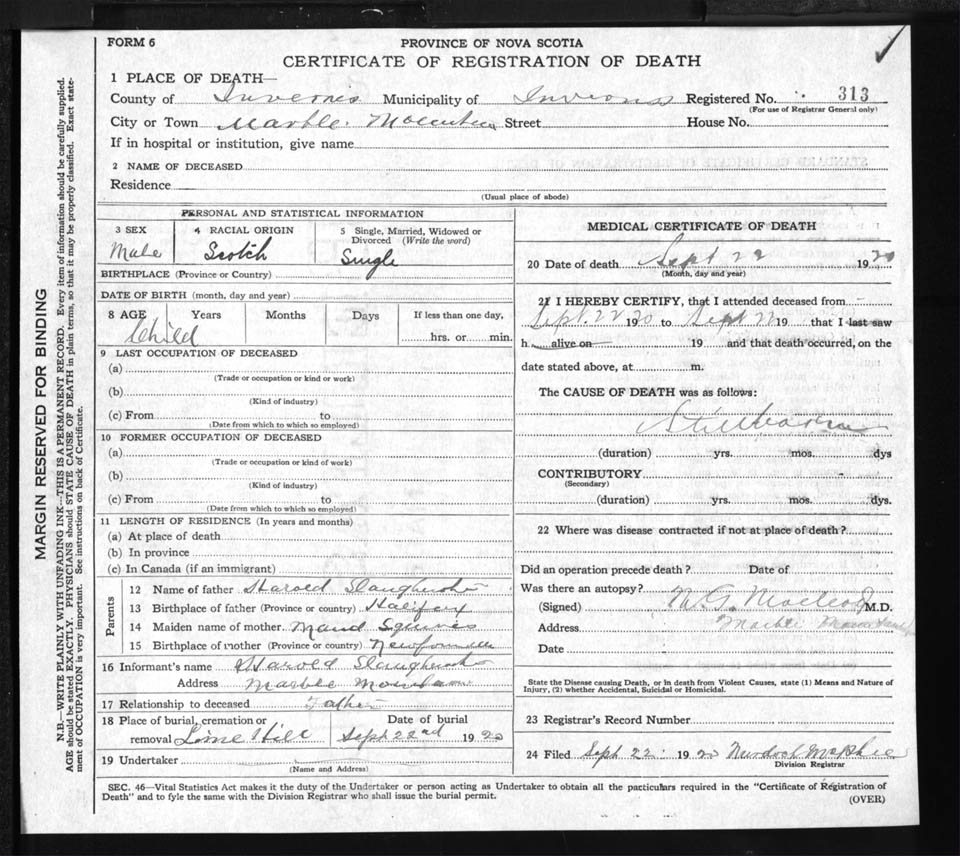 FORM 6
PROVINCE OF NOVA SCOTIA
CERTIFICATE OF REGISTRATION OF DEATH
1 PLACE OF DEATH—
County of Inverness Municipality of Inverness Registered No. 313
(For use of Registrar General only)
City or Town Marble Mountain Street House No.
If in hospital or institution, give name
2 NAME OF DECEASED
Residence
(Usual place of abode)
PERSONAL AND STATISTICAL INFORMATION
3 SEX
Male
4 RACIAL ORIGIN
Scotch
5 Single, Married, Widowed or Divorced (Write the word)
Single
BIRTHPLACE (Province or Country)
DATE OF BIRTH (month, day and year)
8 AGE Years Months Days If less than one day,
Child
hrs. or min.
9 LAST OCCUPATION OF DECEASED
(a)
(Trade or occupation or kind or work)
(b)
(Kind of industry)
(c) From to
(Date from which to which so employed)
10 FORMER OCCUPATION OF DECEASED
(a)
(Trade or occupation or kind of work)
(b)
(Kind of industry)
(c) From to
(Date from which to which so employed)
11 LENGTH OF RESIDENCE (In years and months)
(a) At place of death
(b) In province
(c) In Canada (if an immigrant)
Parents
12 Name of father Harold
13 Birthplace of father (Province or country) Halifax
14 Maiden name of mother Maud Squires
15 Birthplace of mother (Province or country)
16 Informant's name Harold
Address Marble Mountain
17 Relationship to deceased Father
18 Place of burial, cremation or removal Lime Hill
Date of burial
Sept 22nd 1920
19 Undertaker
(Name and Address)
MEDICAL CERTIFICATE OF DEATH
20 Date of death Sept 22 1920
(Month, day and year)
21 I HEREBY CERTIFY, that I attended deceased from
Sept. 22 1920 to Sept 22 19 that I last saw
h alive on 19 and that death occurred, on the
date stated above, at m.
The CAUSE OF DEATH was as follows:
Stillborn
(duration) yrs. mos. dys
CONTRIBUTORY
(Secondary)
(duration) yrs. mos. dys.
22 Where was disease contracted if not at place of death?
Did an operation precede death? Date of
Was there an autopsy?
(Signed) Macleod M.D.
Address Marble Mountain
Date
State the Disease causing Death, or in death from Violent Causes, state (1) Means and Nature of
Injury, (2) whether Accidental, Suicidal or Homicidal.
23 Registrar's Record Number
24 Filed Sept 22 1920 Murdoch McPhee
Division Registrar
SEC. 46—Vital Statistics Act makes it the duty of the Undertaker or person acting as Undertaker to obtain all the particulars required in the "Certificate of Registration of
Death" and to fyle the same with the Division Registrar who shall issue the burial permit.
(OVER)
MARGIN RESERVED FOR BINDING
N.B.—WRITE PLAINLY WITH UNFADING INK—THIS IS A PERMANENT RECORD. Every item of information should be carefully supplied.
AGE should be stated EXACTLY. PHYSICIANS should STATE CAUSE OF DEATH in plain terms, so that it may be properly classified. Exact state-
ment of OCCUPATION is very important. See instructions on back of Certificate.